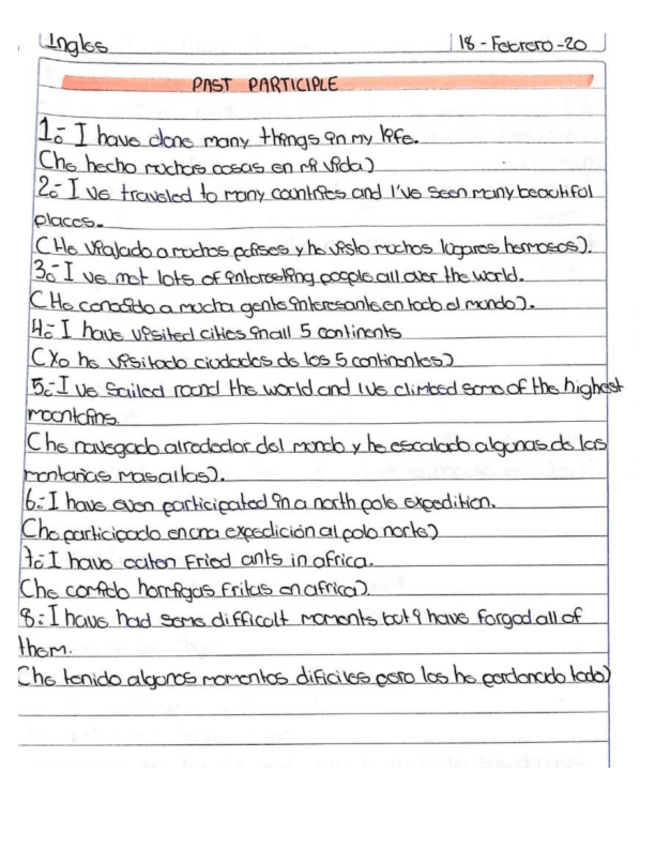 Ingles 18-Febrero-20
PAST PARTICIPLE
1.- I have done many things in my life.
(he hecho muchas cosas en mi vida)
2.- I ve traveled to many countries and I've seen many beautiful
places.
(He viajado a muchos paises y he visto muchos lugares hermosos).
3.- I ve met lots of interesting people all over the world.
(He conocido a mucha gente interesante en todo el mundo).
4.- I have visited cities in all 5 continents
(Yo he visitado ciudades de los 5 continentes)
5.- I ve sailed round the world and Ive climbed some of the highest
mountains.
(he navegado alrededor del mundo y he escalado algunas de las
montañas mas altas).
6.- I have even participated in a north pole expedition.
(he participado en una expedición al polo norte)
7.- I have eaten Fried ants in africa.
(he comido hormigas fritas en africa).
8.- I have had some difficult moments but I have forgod all of
them.
(he tenido algunos momentos dificiles pero los he perdonado todo)